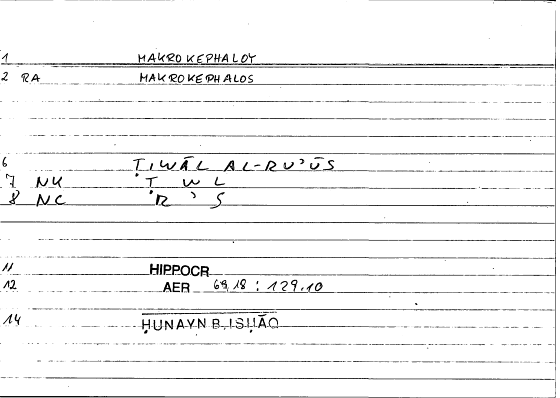 1 MAKROKEPHALOY
2 RA MAKROKEPHALOS
6 ṬIWĀL AL-RU'ŪS
7 NK Ṭ W L
8 NC R ' S
11 HIPPOCR
12 AER 69,18 : 129.10
14 ḤUNAYN B. ISḤĀQ